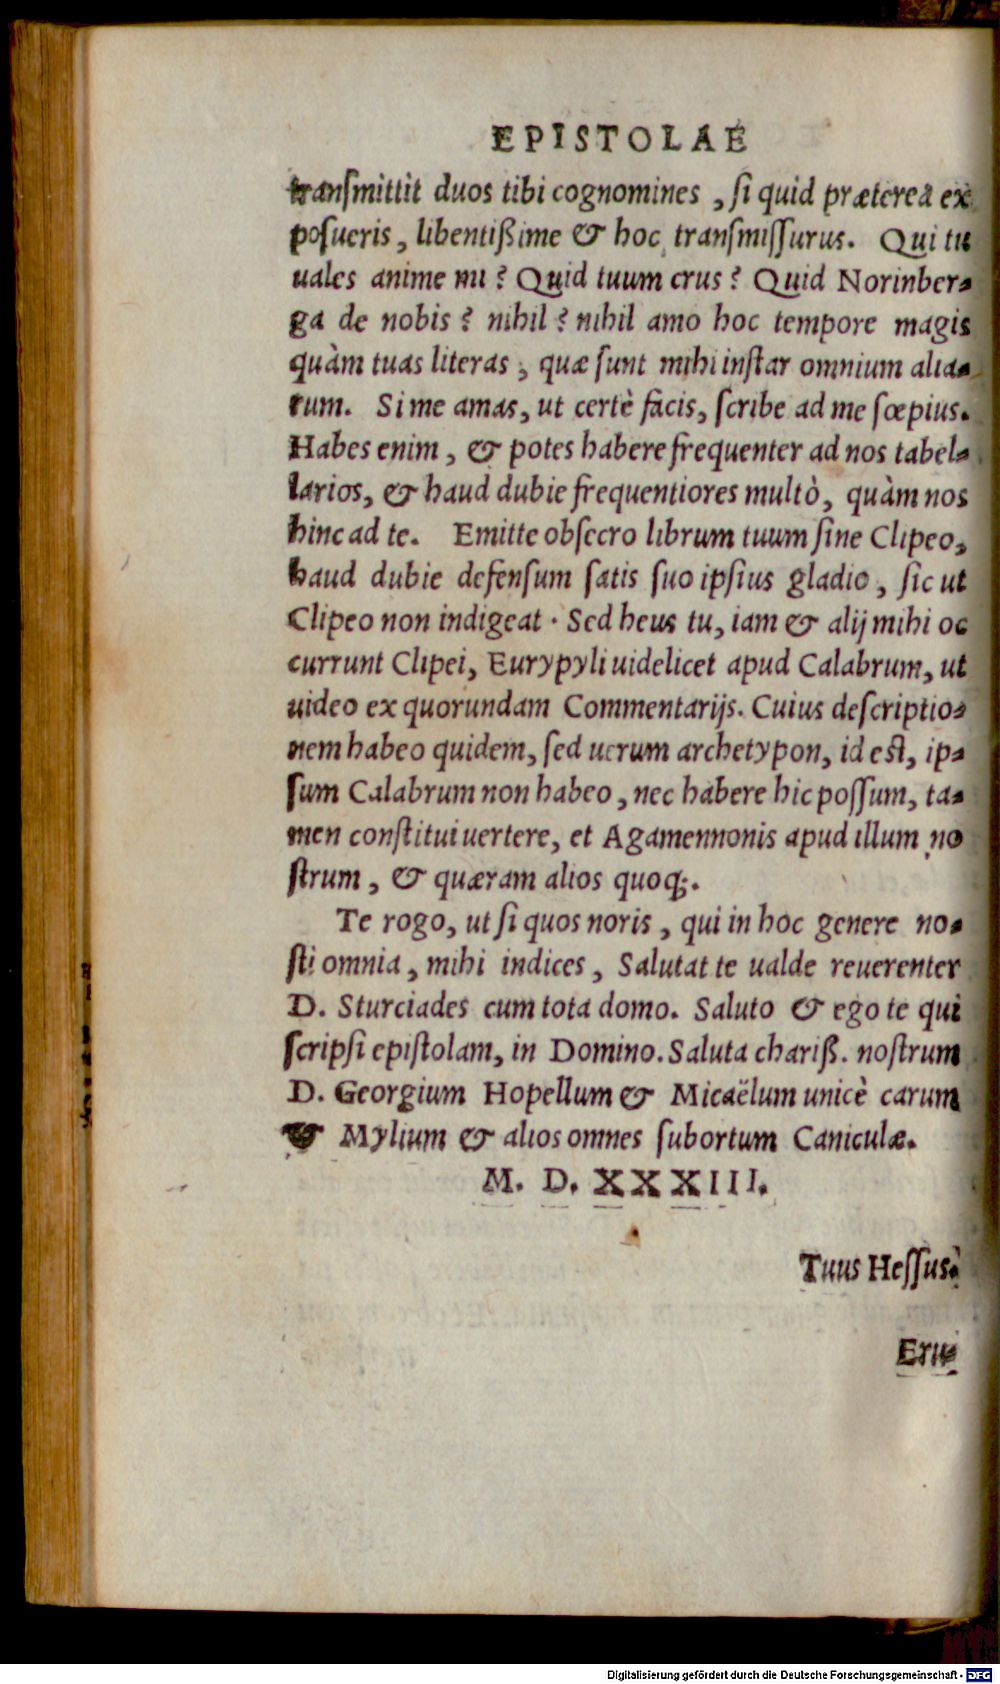 EPISTOLAE
transmittit duos tibi cognomines, si quid præterea ex
posueris, libentißime & hoc transmissurus. Qui tu
uales anime mi? Quid tuum crus? Quid Norinber-
ga de nobis? nihil? nihil amo hoc tempore magis
quàm tuas literas, quæ sunt mihi instar omnium alia-
rum. Si me amas, ut certè facis, scribe ad me sœpius.
Habes enim, & potes habere frequenter ad nos tabel-
larios, & haud dubie frequentiores multò, quàm nos
hinc ad te. Emitte obsecro librum tuum sine Clipeo,
haud dubie defensum satis suo ipsius gladio, sic ut
Clipeo non indigeat. Sed heus tu, iam & alij mihi oc
currunt Clipei, Eurypyli uidelicet apud Calabrum, ut
uideo ex quorundam Commentarijs. Cuius descriptio-
nem habeo quidem, sed uerum archetypon, id est, ip-
sum Calabrum non habeo, nec habere hic possum, ta-
men constitui uertere, et Agamennonis apud illum no
strum, & quæram alios quoq;.
Te rogo, ut si quos noris, qui in hoc genere no-
sti omnia, mihi indices, Salutat te ualde reuerenter
D. Sturciades cum tota domo. Saluto & ego te qui
scripsi epistolam, in Domino. Saluta chariß. nostrum
D. Georgium Hopellum & Micaëlum unicè carum
& Mylium & alios omnes sub ortum Caniculæ.
M. D. XXXIII.
Tuus Hessus.
Eru-
Digitalisierung gefördert durch die Deutsche Forschungsgemeinschaft - DFG